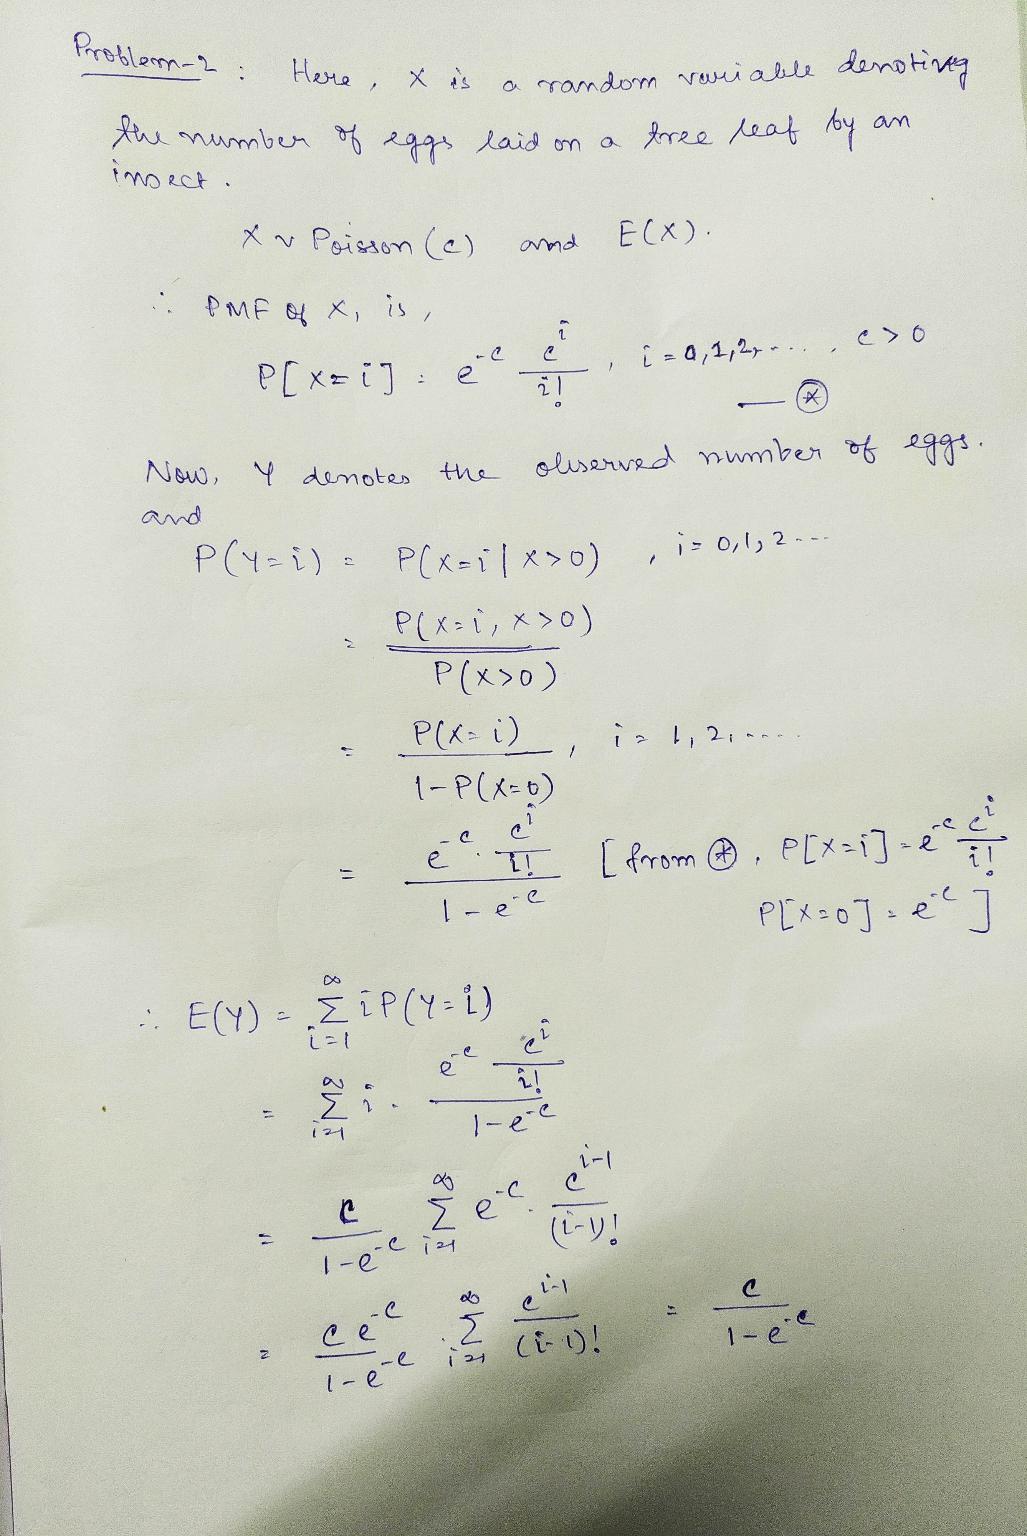 Problem-2 : Here, X is a random variable denoting
the number of eggs laid on a tree leaf by an
insect.
X ~ Poisson (c) and E(X).
∴ PMF of X, is,
P[X=i] = e^{-c} c^i / i! , i = 0,1,2,...., c>0
— ⊛
Now, Y denotes the observed number of eggs.
and
P(Y=i) = P(X=i | X>0) , i=0,1,2...
= P(X=i, X>0) / P(X>0)
= P(X=i) / 1-P(X=0) , i=1,2,....
= e^{-c} . c^i / i! / 1-e^{-c} [from ⊛, P[X=i]=e^{-c} c^i / i!
P[X=0] = e^{-c}]
∴ E(Y) = ∑_{i=1}^{∞} i P(Y=i)
= ∑_{i=1}^{∞} i . e^{-c} c^i / i! / 1-e^{-c}
= c / 1-e^{-c} ∑_{i=1}^{∞} e^{-c} . c^{i-1} / (i-1)!
= c e^{-c} / 1-e^{-c} . ∑_{i=1}^{∞} c^{i-1} / (i-1)! = c / 1-e^{-c}